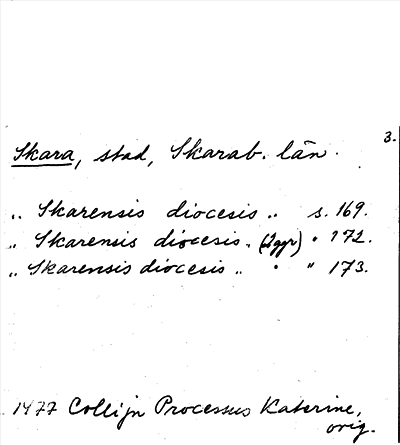 3.
Skara, stad, Skarab. län.
„ Skarensis diocesis „ s. 169.
„ Skarensis diocesis „ (2ggr) " 172.
„ Skarensis diocesis „ " 173.
1477 Collijn Processus Katerine,
orig.